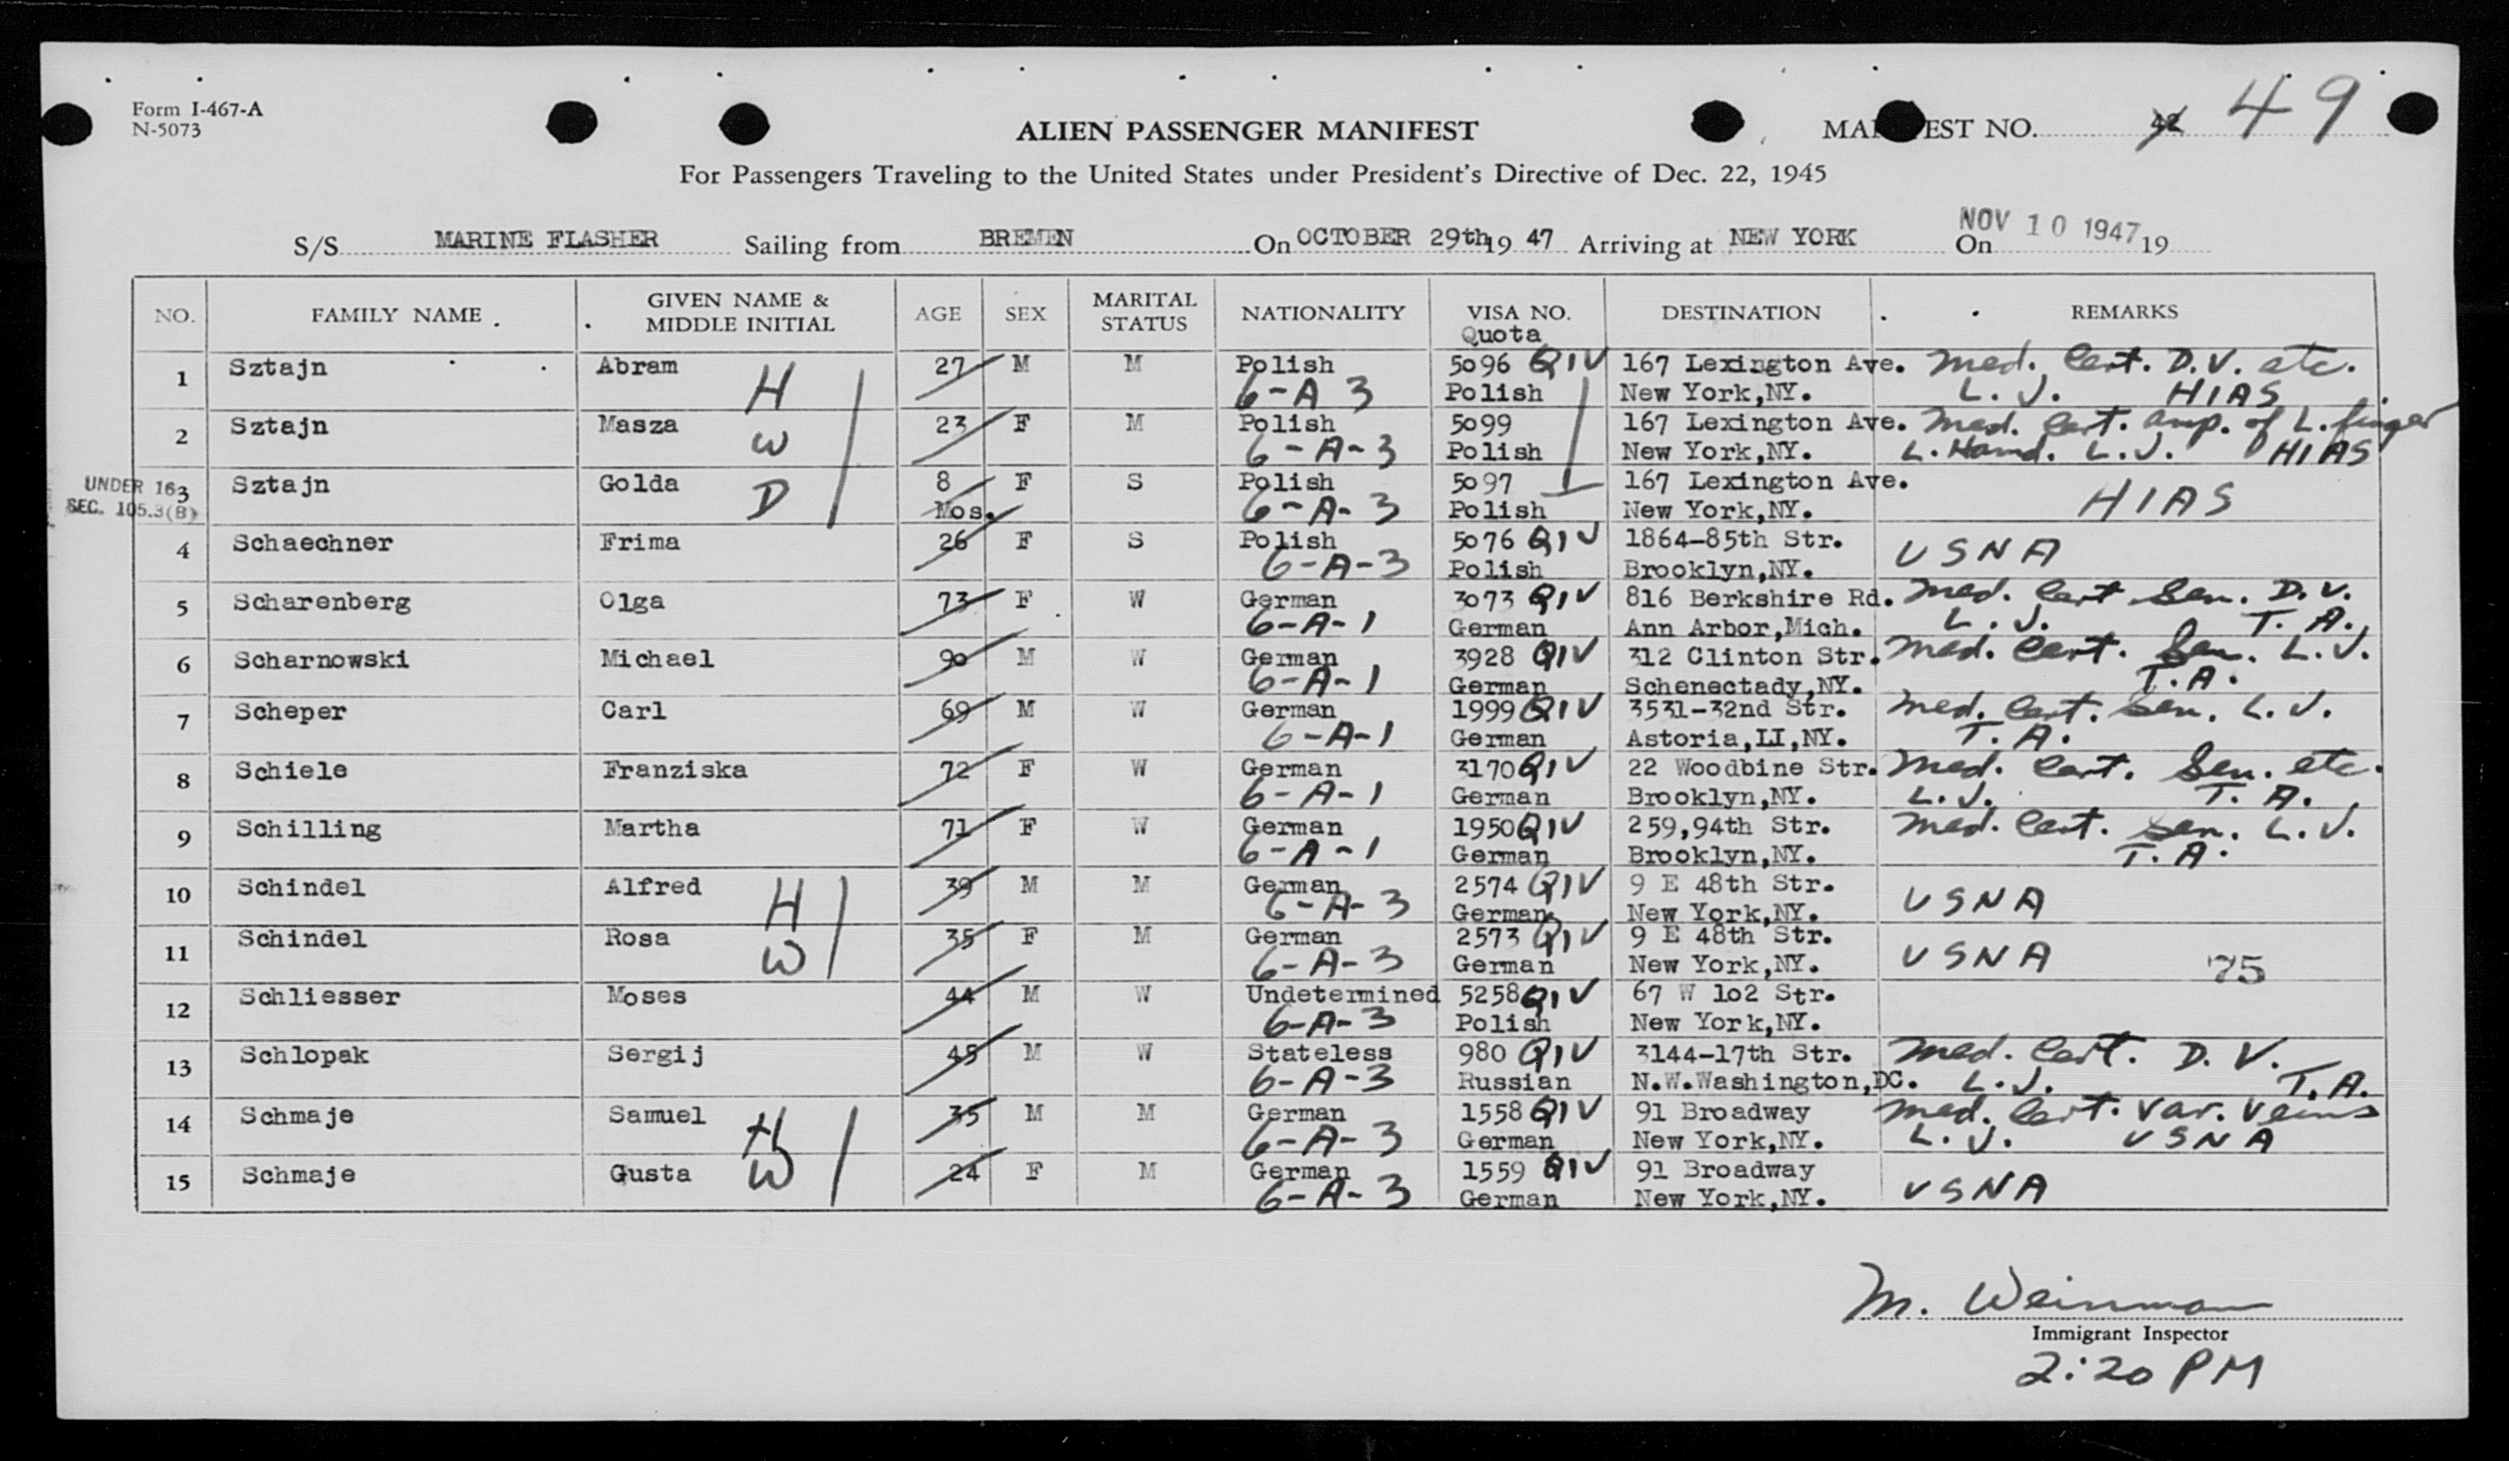 Form I-467-A
N-5073
ALIEN PASSENGER MANIFEST
MANIFEST NO. 42 49
For Passengers Traveling to the United States under President's Directive of Dec. 22, 1945
S/S MARINE FLASHER Sailing from BREMEN On OCTOBER 29th 19 47 Arriving at NEW YORK On NOV 10 1947 19
NO. FAMILY NAME GIVEN NAME & MIDDLE INITIAL AGE SEX MARITAL STATUS NATIONALITY VISA NO. Quota DESTINATION REMARKS
1 Sztajn Abram H 27 M M Polish 5096 QIV 167 Lexington Ave. Med. Cert. D.V. etc.
6-A 3 Polish New York,NY. L.J. HIAS
2 Sztajn Masza W 23 F M Polish 5099 167 Lexington Ave. Med. Cert. amp. of L. finger
6-A-3 Polish New York,NY. L. Hand. L.J. HIAS
UNDER 16 SEC. 105.3(B)
3 Sztajn Golda D 8 Mos. F S Polish 5097 167 Lexington Ave. HIAS
6-A-3 Polish New York,NY.
4 Schaechner Frima 26 F S Polish 5076 QIV 1864-85th Str. USNA
6-A-3 Polish Brooklyn,NY.
5 Scharenberg Olga 73 F W German 3073 QIV 816 Berkshire Rd. Med. Cert Sen. D.V.
6-A-1 German Ann Arbor,Mich. L.J. T.A.
6 Scharnowski Michael 90 M W German 3928 QIV 312 Clinton Str. Med. Cert. Sen. L.J.
6-A-1 German Schenectady,NY. T.A.
7 Scheper Carl 69 M W German 1999 QIV 3531-32nd Str. Med. Cert. Sen. L.J.
6-A-1 German Astoria,LI,NY. T.A.
8 Schiele Franziska 72 F W German 3170 QIV 22 Woodbine Str. Med. Cert. Sen. etc.
6-A-1 German Brooklyn,NY. L.J. T.A.
9 Schilling Martha 71 F W German 1950 QIV 259,94th Str. Med. Cert. Sen. L.J.
6-A-1 German Brooklyn,NY. T.A.
10 Schindel Alfred H 39 M M German 2574 QIV 9 E 48th Str. USNA
6-A-3 German New York,NY.
11 Schindel Rosa W 35 F M German 2573 QIV 9 E 48th Str. USNA
6-A-3 German New York,NY. 75
12 Schliesser Moses 44 M W Undetermined 5258 QIV 67 W 102 Str.
6-A-3 Polish New York,NY.
13 Schlopak Sergij 45 M W Stateless 980 QIV 3144-17th Str. Med. Cert. D.V.
6-A-3 Russian N.W.Washington,DC. L.J. T.A.
14 Schmaje Samuel H 35 M M German 1558 QIV 91 Broadway Med. Cert. Var. Veins
6-A-3 German New York,NY. L.J. USNA
15 Schmaje Gusta W 24 F M German 1559 QIV 91 Broadway USNA
6-A-3 German New York,NY.
M. Weinman
Immigrant Inspector
2:20 PM